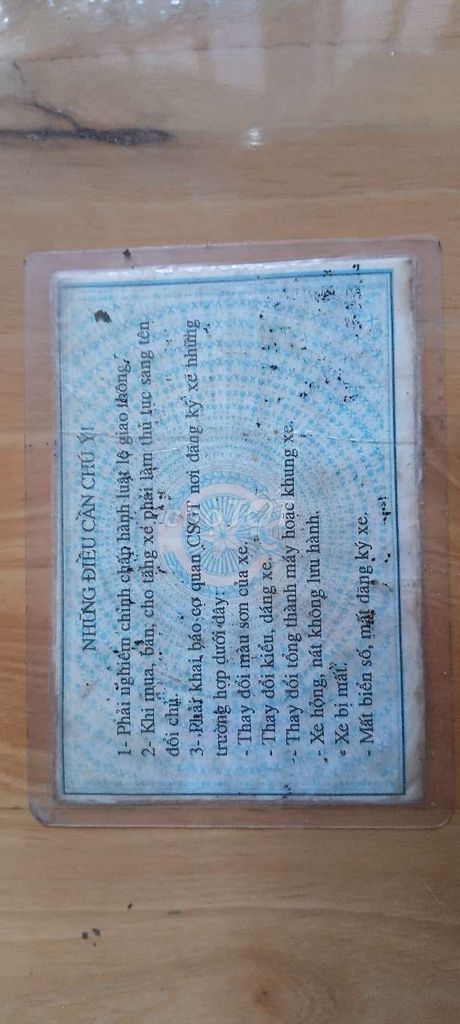 NHỮNG ĐIỀU CẦN CHÚ Ý!
1- Phải nghiêm chỉnh chấp hành luật lệ giao thông.
2- Khi mua, bán, cho tặng xe phải làm thủ tục sang tên
đổi chủ.
3- Phải khai báo cơ quan CSGT nơi đăng ký xe những
trường hợp dưới đây:
- Thay đổi màu sơn của xe.
- Thay đổi kiểu, dáng xe.
- Thay đổi tổng thành máy hoặc khung xe.
- Xe hỏng, nát không lưu hành.
- Xe bị mất.
- Mất biển số, mất đăng ký xe.